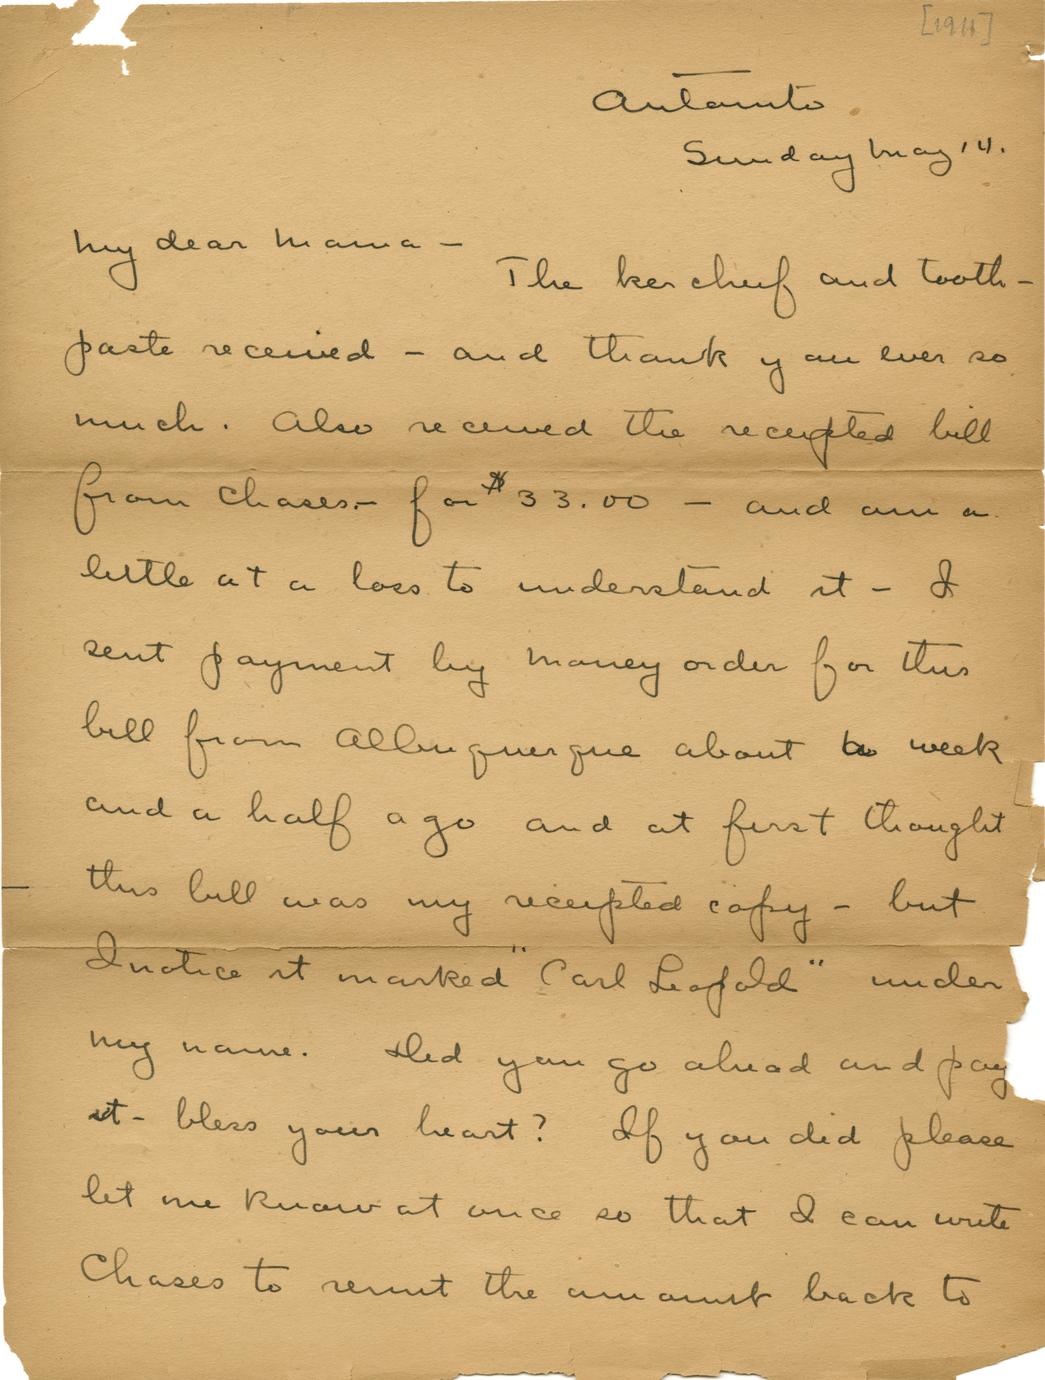 [1911]
Antonito
Sunday May 14.
My dear Mama –
The kercheif and tooth-
paste received – and thank you ever so
much. Also received the receipted bill
from Chases – for $33.00 – and am a
little at a loss to understand it – I
sent payment by money order for this
bill from Albuquerque about a week
and a half ago and at first thought
this bill was my receipted copy – but
I notice it marked "Carl Leopold" under
my name. Did you go ahead and pay
it – bless your heart? If you did please
let me know at once so that I can write
Chases to remit the amount back to